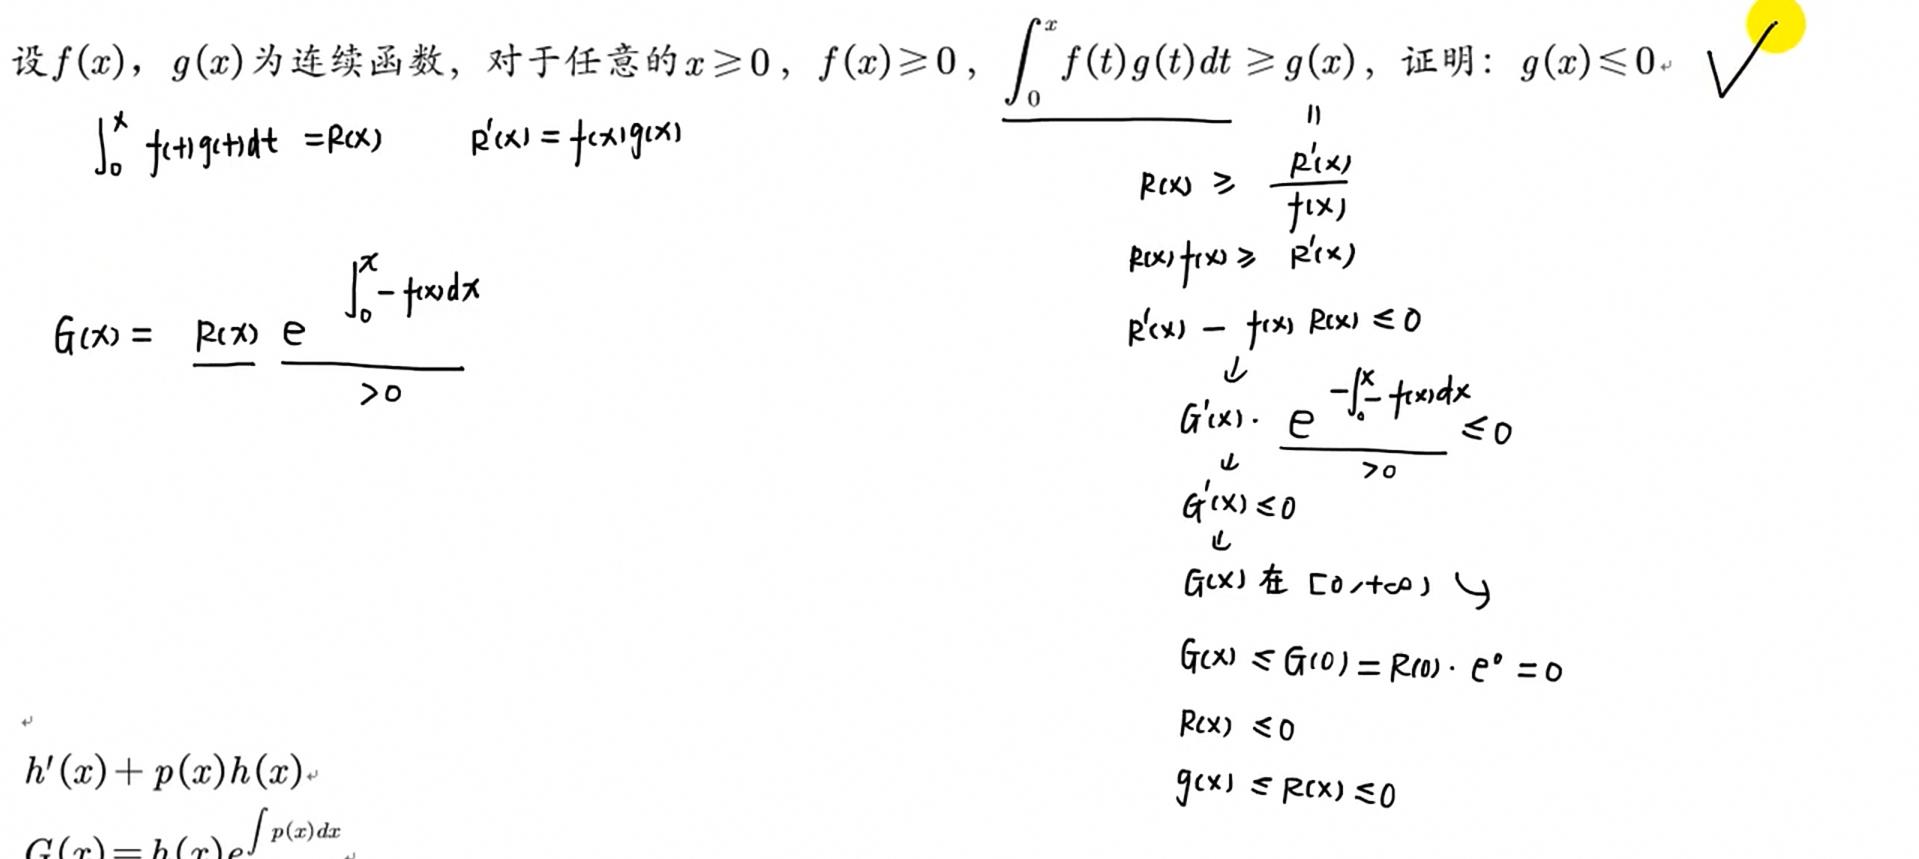 设f(x)，g(x)为连续函数，对于任意的x≥0，f(x)≥0，∫₀ˣ f(t)g(t)dt≥g(x)，证明：g(x)≤0
∫₀ˣ f(t)g(t)dt = R(x)  R'(x) = f(x)g(x)
G(x) = R(x) e^(∫₀ˣ - f(x)dx)
>0
||
R(x) ≥ R'(x)/f(x)
R(x) f(x) ≥ R'(x)
R'(x) - f(x) R(x) ≤ 0
↓
G'(x) · e^(-∫₀ˣ - f(x)dx) ≤ 0
>0
↓
G'(x) ≤ 0
↓
G(x) 在 [0,+∞) ↘
G(x) ≤ G(0) = R(0) · e⁰ = 0
R(x) ≤ 0
g(x) ≤ R(x) ≤ 0
h'(x)+p(x)h(x)
G(x)=h(x)e^(∫p(x)dx)